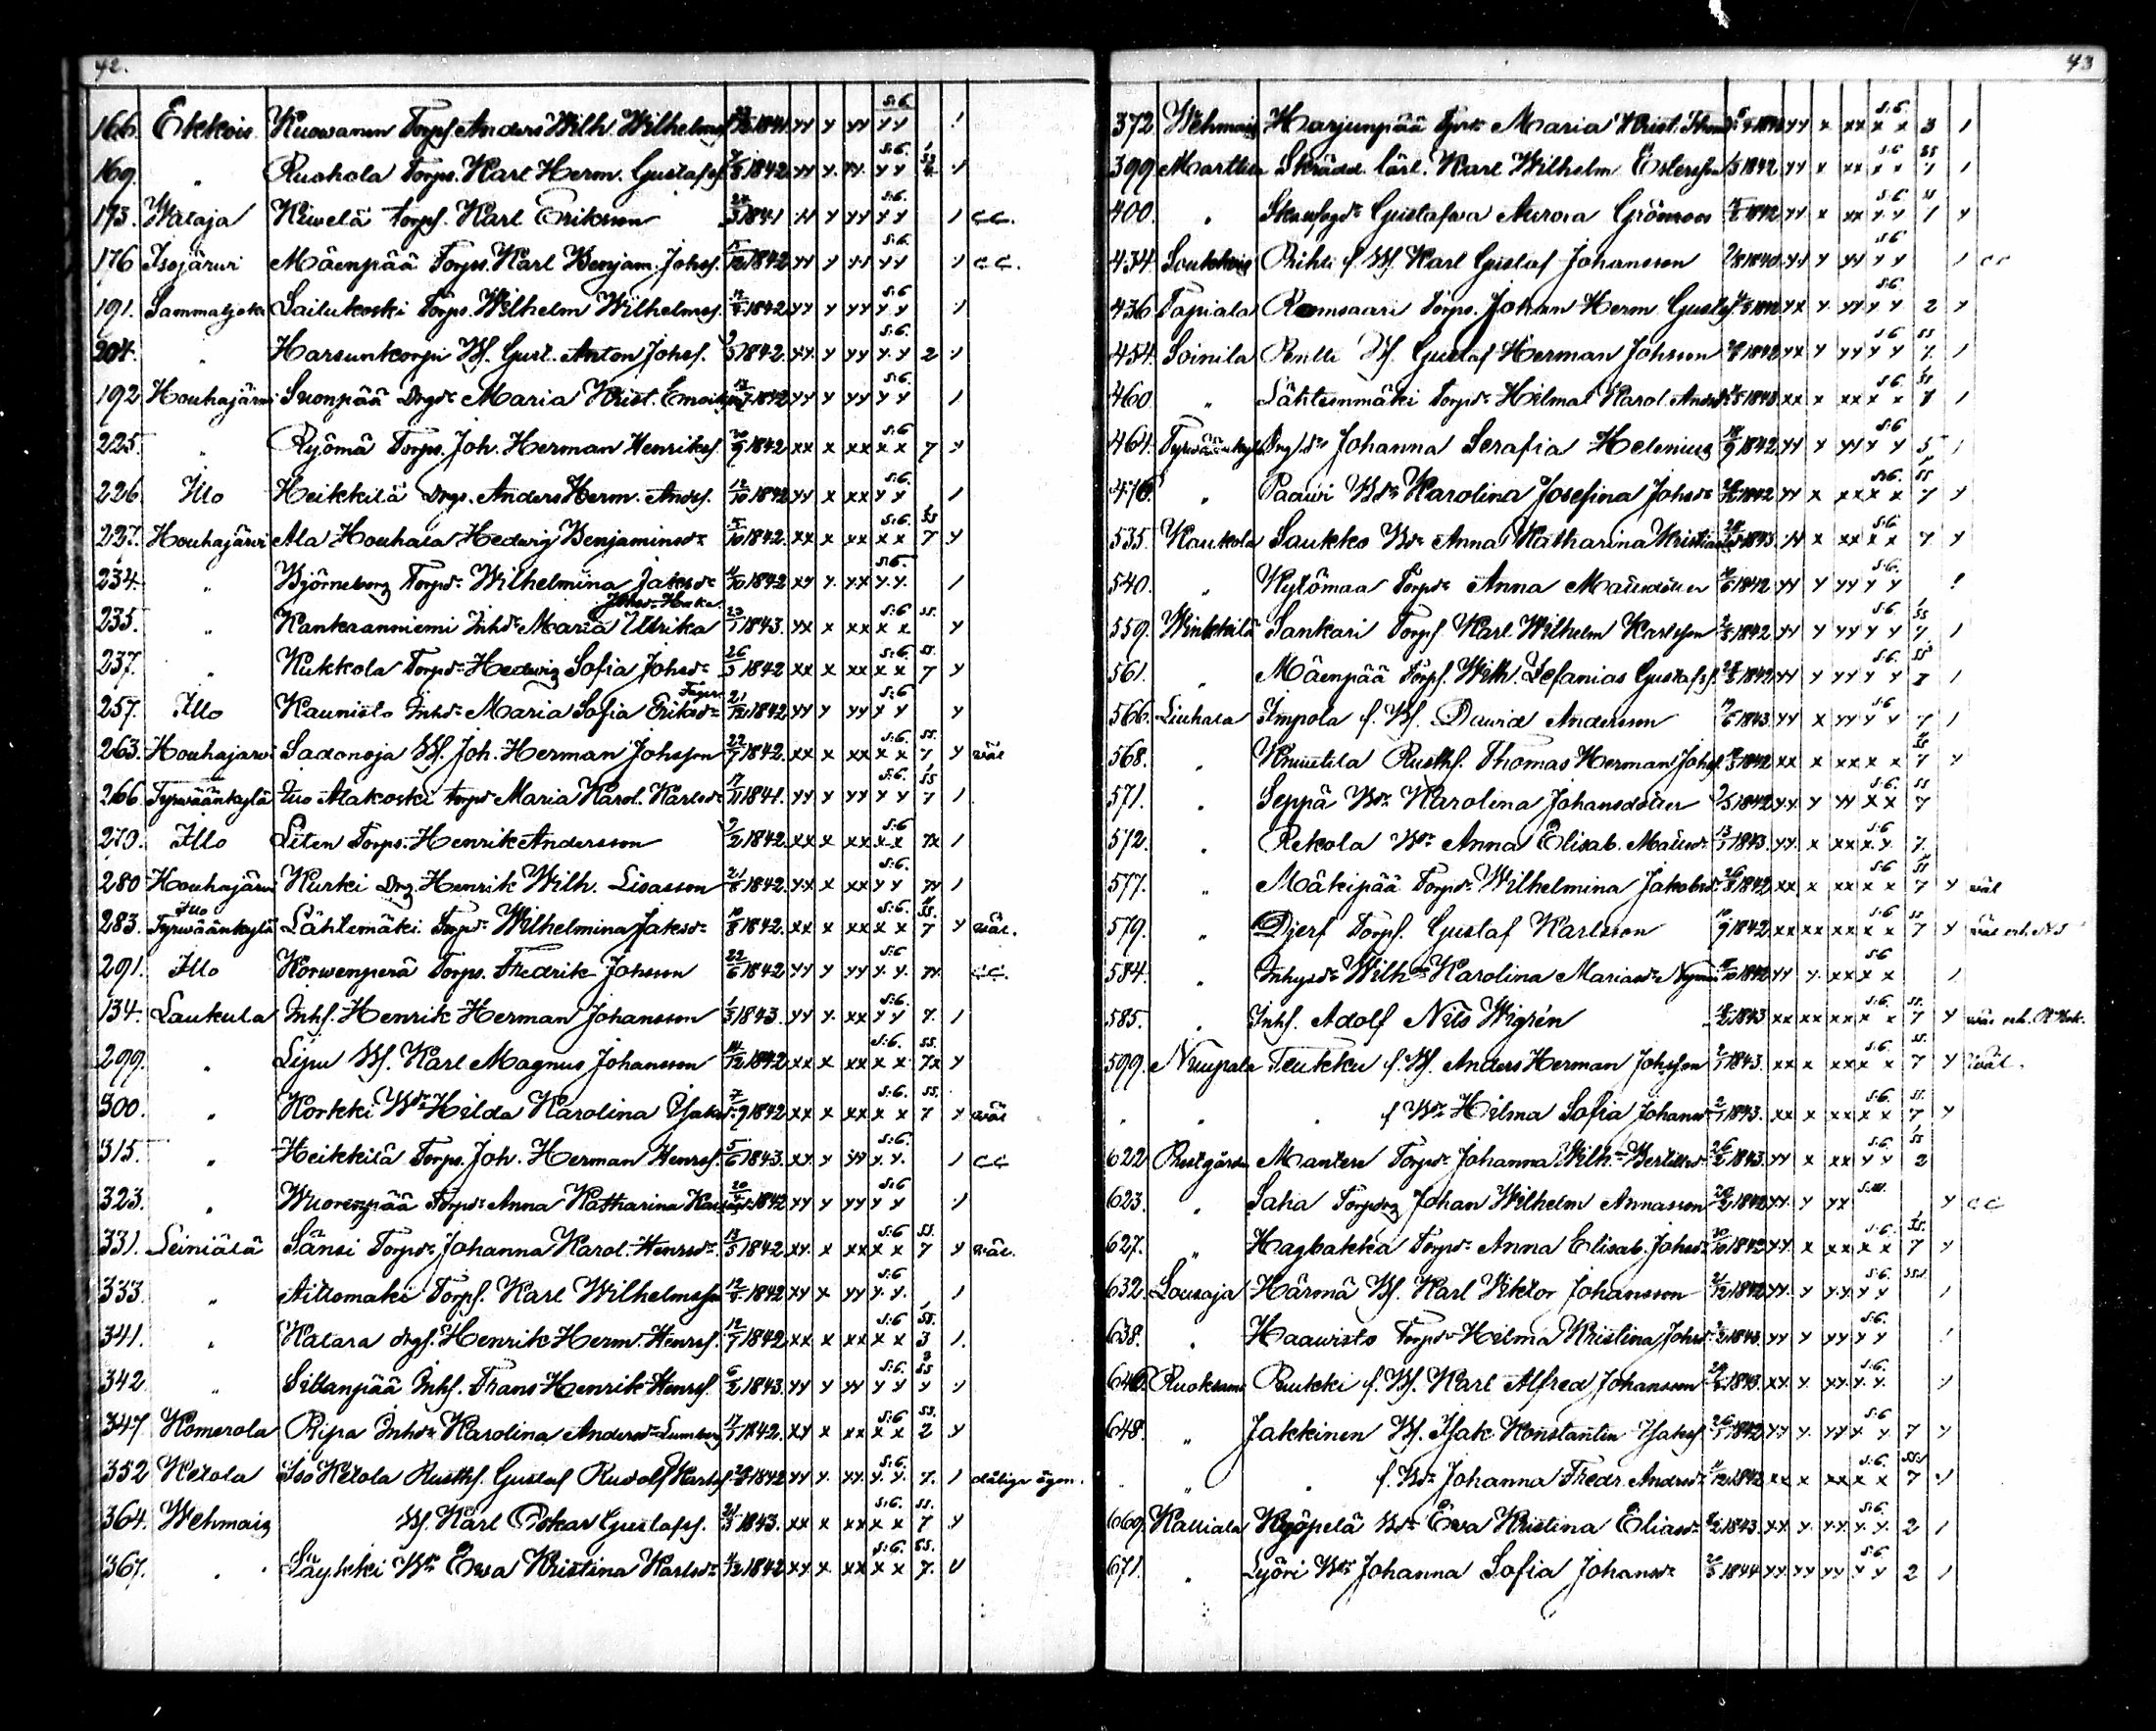 42.
166. Ekkois Kuowanen Torpf. Anders Wilh. Wilhelmsf. 1841 xx x xx S:6. xx /
169. " Ruohola Torps. Karl Herm. Gustafsf. 1842 xx x xx S:6. xx
173. Wataja Kiwelä torpf. Karl Eriksson 1841 xx x xx S:6. xx / C.C.
176 Isojärwi Mäenpää Torps. Karl Benjam. Johsf. 1842 xx x xx S:6. xx C.C.
191. Sammaljoki Sailukoski Torps. Wilhelm Wilhelmsf. 1842 xx x xx S:6 xx
204. " Harsunkorpi Bf. Gust. Anton Johsf. 1842. xx x xx S:6. xx 2
192 Houhajärwi Suonpää Drgdr Maria Krist. 1842 xx x xx S:6. xx /
225. " Ryömä Torps. Joh. Herman Henriksf. 20/9 1842 xx x xx S:6 xx 7
226 Illo Heikkilä Drgs. Anders Herm. Andsf. 12/10 1842 xx x xx S:6. xx /
227. Houhajärwi Ala Houhala Hedwig Benjaminsdr 1842. xx x xx S:6. xx 7
234. " Björneborg Torpdr Wilhelmina Jaksdr 1842 xx x xx S:6. xx /
235. " Kankaanniemi Inhdr Maria Ulrika 23/1 1843. xx x xx S:6 xx SS.
237. " Kukkola Torpdr Hedwig Sofia Johsdr 26/3 1842 xx x xx S:6. xx SS. 7
257. Illo Kaunisto Inhdr Maria Sofia Eriksdr 21/12 1842 xx x xx S:6 xx
263. Houhajärwi Sadonoja Bf. Joh. Herman Johsson 22/7 1842. xx x xx S:6. xx SS. 7 wäl
266. Tyrwäänkylä Iso Alakoski torpdr Maria Karol. Karlsdr 17/11 1841. xx x xx S:6. xx SS 7 /
279. Illo Liten Torps. Henrik Andersson 9/2 1842. xx x xx S:6 xx 7x /
280 Houhajärwi Kurki Drg. Henrik Wilh. Lisasson 1842. xx x xx S:6. xx /
283. Illo Tyrwäänkylä Lähtemäki Torpdr Wilhelmina Jaksdr 10/8 1842. xx x xx S:6. xx SS. 7 wäl.
291. Illo Korwenperä Torps. Fredrik Johsson 22/6 1842 xx x xx S:6 xx C.C.
134. Laukula Inhf. Henrik Herman Johansson 1/3 1843. xx x xx S:6. xx 7. /
299. " Lipu Bf. Karl Magnus Johansson 14/12 1842 xx x xx S:6. xx SS. 7x
300. " Korkki Bdr Hilda Karolina 7/9 1842 xx x xx S:6. xx SS. 7 wäl
315. " Heikkilä Torps. Joh. Herman Henrsf. 5/6 1843. xx x xx S:6. xx / C.C
323. " Wuorenpää Torpdr Anna Katharina 1842 xx x xx S:6 xx
331. Leiniälä Sänsi Torpdr Johanna Karol. Henrsdr 13/5 1842 xx x xx S:6 xx SS. 7 wäl.
333. " Aittomäki Torpf. Karl Wilhelmsson 1842 xx x xx S:6 xx /
341. " Katara drgf. Henrik Herm. Henrsf. 12/7 1842 xx x xx S:6 xx SS. 3 /
342 " Sillanpää Inhf. Frans Henrik Henrsf. 6/2 1843. xx x xx S:6. xx SS
347 Komerola Ripa Inhdr Karolina Andersdr 17/7 1842. xx x xx S:6 xx SS. 2
352 Ketola Iso Ketola Rusthf. Gustaf Rudolf Karlsf. 1842 xx x xx S:6. xx 7. / dåliga ögon.
364. Wehmais Bf. Karl Oskar Gustafsf. 1843. xx x xx S:6. xx SS. 7
367. " Säykki Bdr Ewa Kristina Karlsdr 1842 xx x xx S:6. xx SS. 7.
43
372 Wehmais Harjunpää Maria Krist. xx x xx S:6. xx 3 /
399 Marttila Skrädd. lärl. Karl Wilhelm 1842 xx x xx S:6 xx SS 7 /
400. " Gustafwa Aurora Grönroos 1842 xx x xx S:6 xx
434. Soukko Rihti f. Bf. Karl Gustaf Johansson xx x xx S:6 xx / CC
436. Tapiala Torps. Johan Herm. Gustafsf. 1842 xx x xx S:6. xx 2
454. Soinila Pentti Bf. Gustaf Herman Johsson 1842 xx x xx S:6 xx SS 7. /
460. " Lähteenmäki Torpdr Hilma Karol. 1843 xx x xx S:6. xx SS /
464. Tyrwäänkylä Johanna Serafia Helenius 18/9 1842 xx x xx S:6 xx 5 /
476. " Paawi Bdr Karolina Josefina Johsdr 1842 xx x xx S:6. xx SS 7
535. Kaukola Saukko Bdr Anna Katharina 1843. xx x xx S:6 xx 7
540. " Kytömaa Torpdr Anna Mattsdotter 1842 xx x xx S:6. xx
559. Winkkilä Sankari Torpf. Karl Wilhelm Karlsson 1842 xx x xx S:6 xx SS 7. /
561. " Mäenpää Torpf. Wilh. Sefanias Gustafsf. 1842 xx x xx S:6. xx SS /
566. Liuhala Impola f. Bf. Dawid Andersson 1843. xx x xx S:6 xx 7 /
568. " Knuutila Rusthf. Thomas Herman Johsf. 1842 xx x xx xx SS 7
571. " Seppä Bdr Karolina Johansdotter 1842 xx x xx S:6. xx SS 7
572. " Rekola Bdr Anna Elisab. Mattsdr 13/1 1843. xx x xx S:6 xx 7.
577. " Mäkipää Torpdr Wilhelmina Jakobsdr 1842 xx x xx S:6 xx SS 7 wäl
579. " Djerf Torpf. Gustaf Karlsson 10/9 1842 xx xx xx S:6 xx SS 7
584. " Inhysdr Wilhna Karolina Mariasdr 1842 xx x xx S:6 xx /
585. " Inhf. Adolf Nils Wigrén 1843 xx xx xx S:6. xx SS. 7
599. Nuupala Teukku f. Bf. Anders Herman Johsson 1843. xx x xx S:6. xx SS. 7 wäl.
" " " f Bdr Hilma Sofia Johansdr 1843. xx x xx S:6. xx SS. 7
622 Prestgården Mantere Torpdr Johanna Wilhna 1843. xx x xx S:6. xx SS 2
623. " Saha Torpdrg Johan Wilhelm Annasson 1842 xx x xx CC
627. " Hagbakka Torpdr Anna Elisab. Johsdr 30/10 1842 xx x xx S:6. xx SS. 7
632. Lousaja Härmä Bf. Karl Wiktor Johansson 21/12 1842 xx x xx S:6. xx SSS. /
638. " Haawisto Torpdr Hilma Kristina Johsdr 1843. xx x xx S:6. xx /
646. Ruukki f. Bf. Karl Alfred Johansson 1843. xx x xx S:6. xx
648. " Jakkinen Bf. Isak Konstantin Isaksf 1842 xx x xx S:6 xx 7
" " " f. Bdr Johanna Fredr. Andrsdr 1842 xx x xx S:6. xx SS 7
669. Kalliala Kyöpelä Bdr Ewa Kristina Eliasdr 1843. xx x xx S:6. xx 2 /
671. " Lyöri Bdr Johanna Sofia Johansdr 1844 xx xx xx S:6. xx 2 /